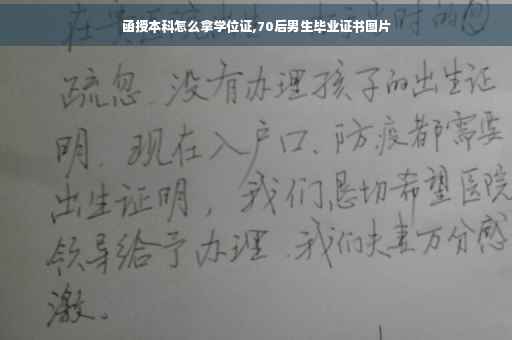 函授本科怎么拿学位证,70后男生毕业证书图片
疏忽、没有办理孩子的出生证
明、现在入户口、防疫都需要
出生证明，我们恳切希望医院
领导给予办理、我们夫妻万分感
激。